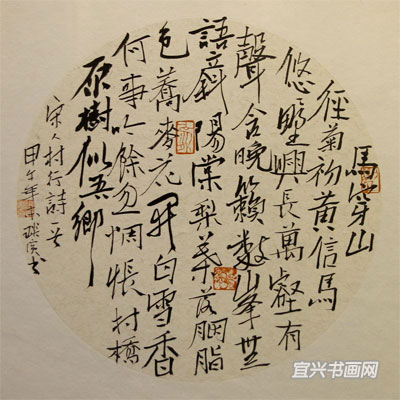 馬穿山
徑菊初黄信馬
悠々埜興長萬壑有
聲含晚籟數峰無
語立斜陽棠梨葉落胭脂
色蕎麥花开白雪香
何事吟餘忽惆悵村橋
原樹似吾鄉
宋人村行詩一首
甲午年
書
宜兴书画网